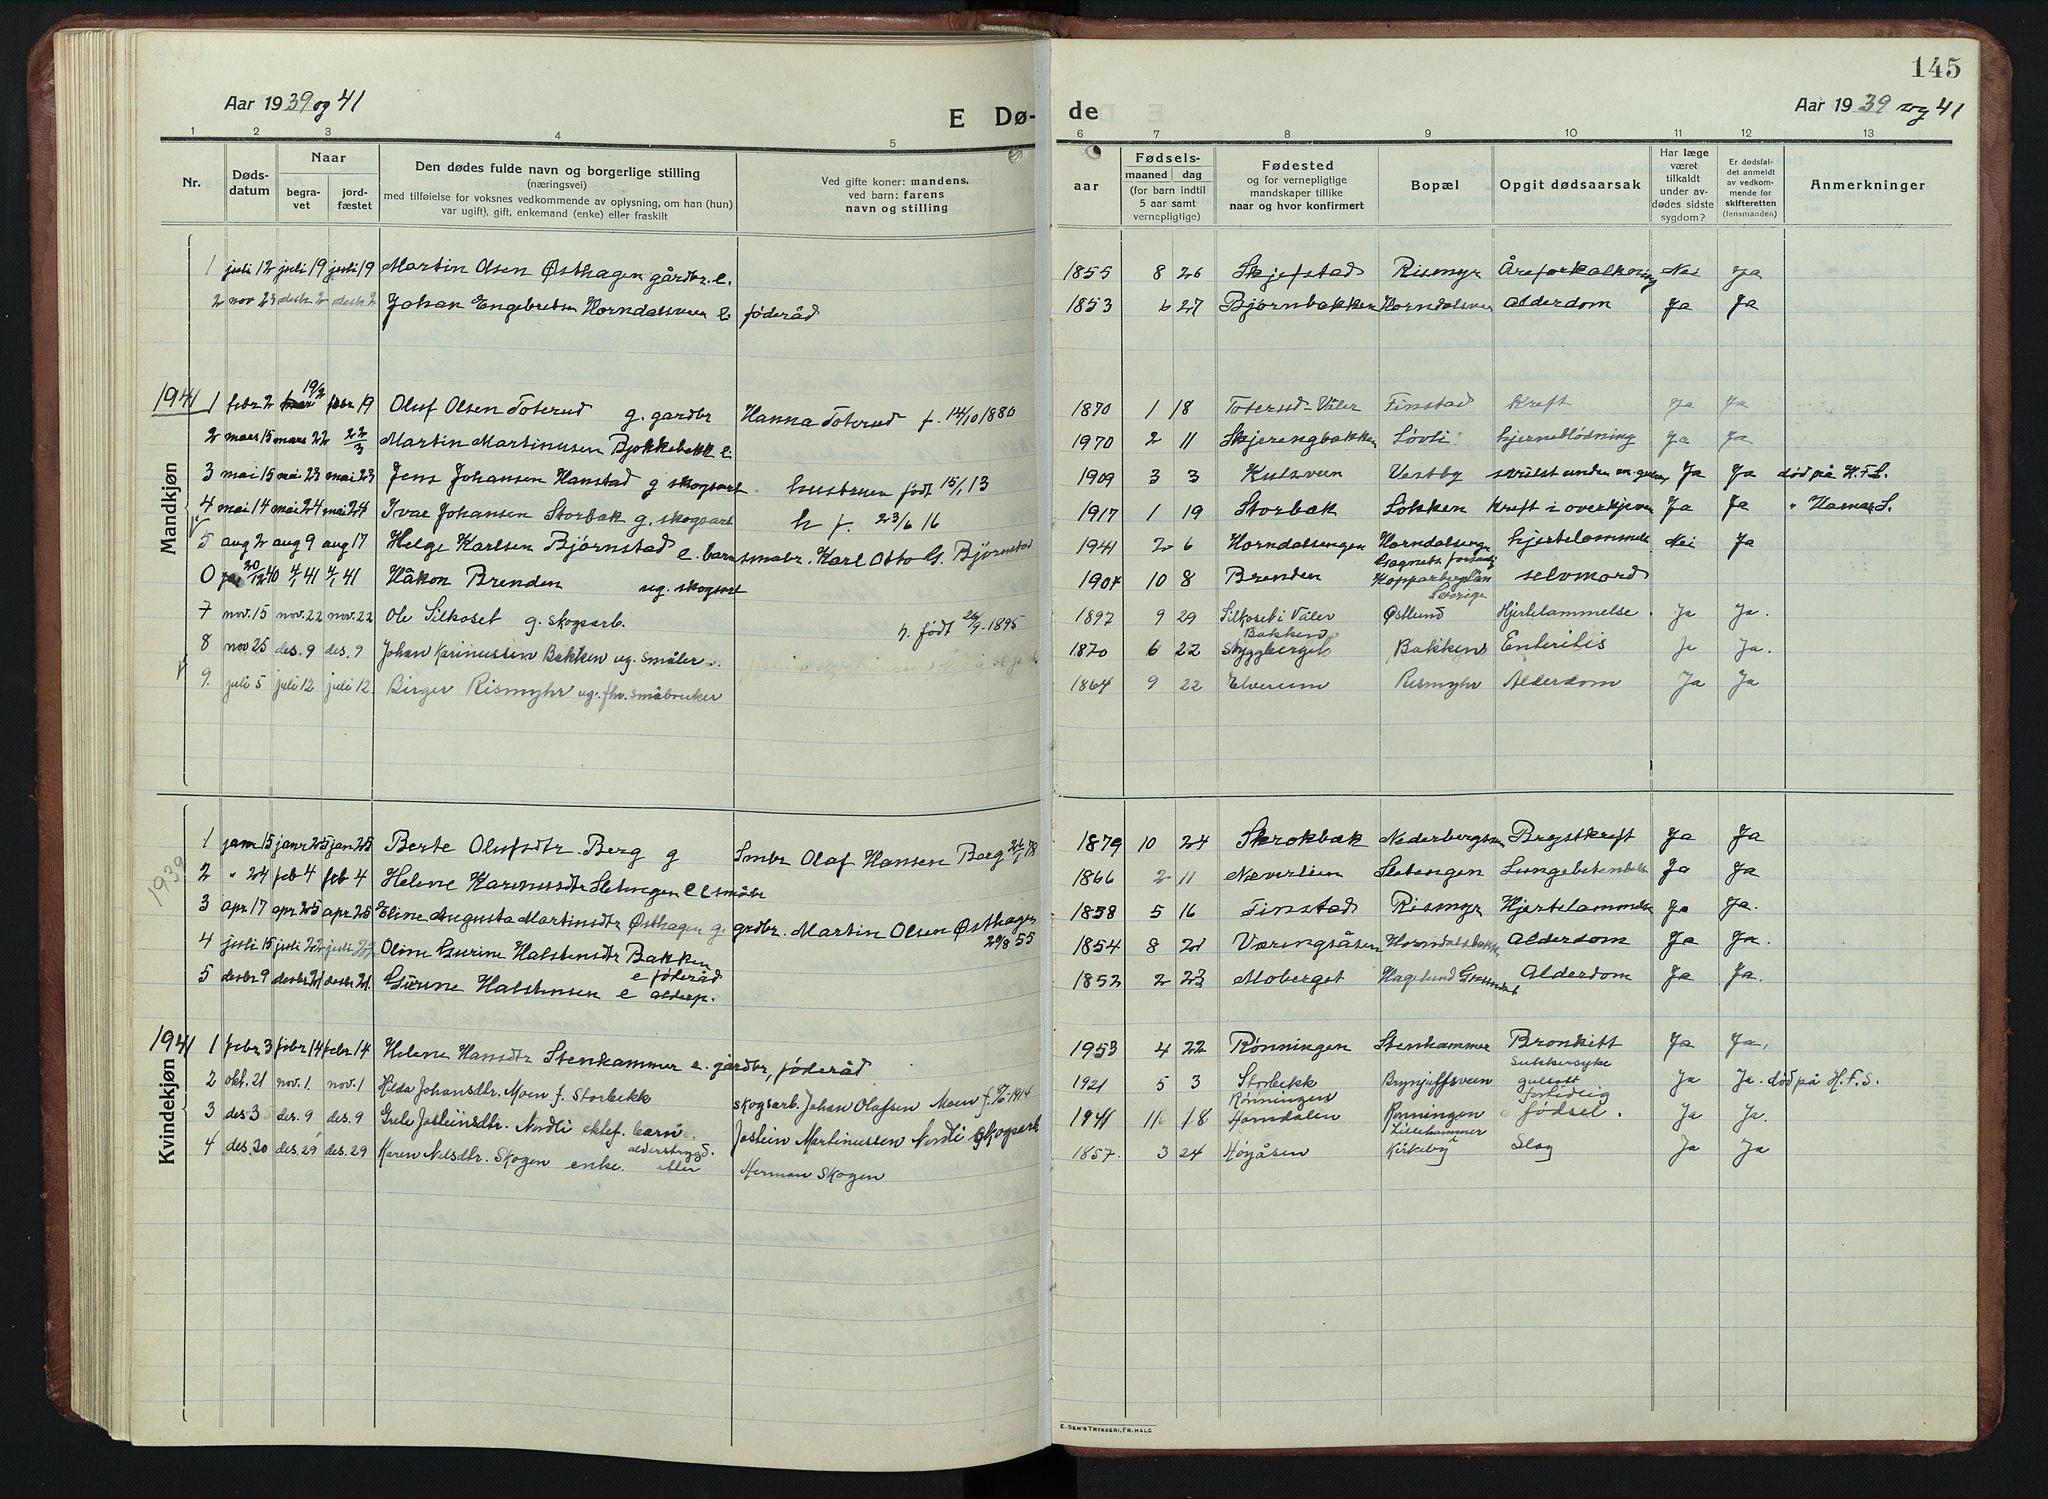 145
Aar 1939 og 41
E Dø-
de
Aar 1939 og 41
1 2 3 4 5 6 7 8 9 10 11 12 13
Nr.
Døds-
datum
Naar
begra-
vet
jord-
fæstet
Den dødes fulde navn og borgerlige stilling
(næringsvei)
med tilføielse for voksnes vedkommende av oplysning, om han (hun)
var ugift), gift, enkemand (enke) eller fraskilt
Ved gifte koner: mandens,
ved barn: farens
navn og stilling
aar
Fødsels-
maaned dag
(for barn indtil
5 aar samt
vernepligtige)
Fødested
og for vernepligtige
mandskaper tillike
naar og hvor konfirmert
Bopæl
Opgit dødsaarsak
Har læge
været
tilkaldt
under av-
dødes sidste
sygdom?
Er dødsfal-
det anmeldt
av vedkom-
mende for
skifteretten
(lensmanden)
Anmerkninger
Mandkjøn
1 juli 12 juli 19 juli 19 Martin Olsen Østhagen gårdbr. e. 1855 8 26 Skjefstad Rismyr Åreforkalkning Nei Ja
2 nov 23 desbr 2 desbr 2 Johan Engebretsen Horndalsveen e føderåd 1853 6 27 Bjørnbakken Horndalsveen Alderdom Ja Ja
1941
1 febr 2 19/2 febr 19 Oluf Olsen Toterud g. gardbr Hanna Toterud f. 14/10 1880 1870 1 18 Toterud-Våler Finstad Kreft Ja Ja
2 mars 15 mars 22 22/3 Martin Martinusen Bjøkkebekk e. 1970 2 11 Skjerengbakken Løvli hjerneblødning Ja Ja
3 mai 15 mai 23 mai 23 Jens Johansen Hanstad g skogsart. hustruen født 15/1 13 1909 3 3 Kulsveen Vestby svulst under Ja Ja død på H.F.S.
4 mai 14 mai 24 mai 24 Ivar Johansen Storbæk g. skogsart h f. 23/6 16 1917 1 19 Storbæk Løkken Kreft i overkjeven Ja Ja " Hamar S.
5 aug 2 aug 9 aug 17 Helge Karlsen Bjørnstad e. barn småbr. Karl Otto G. Bjørnstad 1941 2 6 Horndalsengen Horndalsenge hjertelammelse Nei Ja
0 20/12 40 4/1 41 4/1 41 Håkon Brenden ug. skogsart 1904 10 8 Brenden Sognets forsaml. Kopparbergs län Sverige selvmord
7 nov. 15 nov. 22 nov. 22 Ole Silkoset g. skogsarb. h. født 26/9-1895 1897 9 29 Silkoset i Våler Østlund Hjertelammelse. Ja Ja.
8 nov 25 des. 9 des. 9 Johan Karinussen Bakken ug. småbr. 1870 6 22 Bakken Skyggberget Bakken Enteritis Ja Ja.
9. juli 5 juli 12 juli 12. Birger Rismyhr ug. fhv. småbruker 1864 9 22 Elverum Rismyhr Alderdom Ja Ja
Kvindekjøn
1939
1 janr 15 janr 25 jan 25 Berte Olufsdtr Berg g Smbr Olaf Hansen Berg 26/1 78 1879 10 24 Skrokbæk Nederbergsveen Brystkreft Ja Ja
2 " 24 feb 4 feb 4 Helene Karinusdtr Sletengen e e småbr 1866 2 11 Næverlien Sletengen Lungebetendelse Ja Ja
3 apr 17 apr 25 apr 25 Eline Augusta Martinsdtr Østhagen g. grdbr. Martin Olsen Østhagen 26/8 55 1858 5 16 Finstad Rismyr Hjertelammelse Ja Ja.
4 juli 15 juli 22 juli 22 Oline Gurine Halstensdtr Bakken e føderåd 1854 8 21 Væringsåsen Horndalsbakk Alderdom Ja Ja.
5 desbr 9 desbr 21 desbr 21. Gurine Halstensen e alderp. 1852 2 23 Moberget Hagelund Grundset Alderdom Ja Ja.
1941
1 febr 3 febr 14 febr 14 Helene Hansdtr Stenhammer e. gårdbr, føderåd 1953 4 22 Rønningen Stenhammer Bronkitt Ja Ja.
2 okt. 21 nov. 1 nov. 1 Hilda Johansdtr. Moen f. Storbekk skogsarb. Johan Olafsen Moen f. -1914 1921 5 3 Storbekk Brynjulfsveen Sukkersyke gulsott Ja Ja. død på H.F.S.
3 des 3 des. 9 des. 9 Grete Josteinsdtr. Nordli ektef. barn. Jostein Martinussen Nordli skogsarb 1941 11 18 Rønningen Horndalen Rønningen fortidlig fødsel. Ja Ja.
4 des. 20 des. 29 des. 29 Karen Nilsdtr. Skogen enke. alderstrygd. etter Herman Skogen 1857. 3 24 Høyåsen Lillehammer Kirkeby Slag Ja Ja
E. SEM'S TRYKKERI, FR.HALD